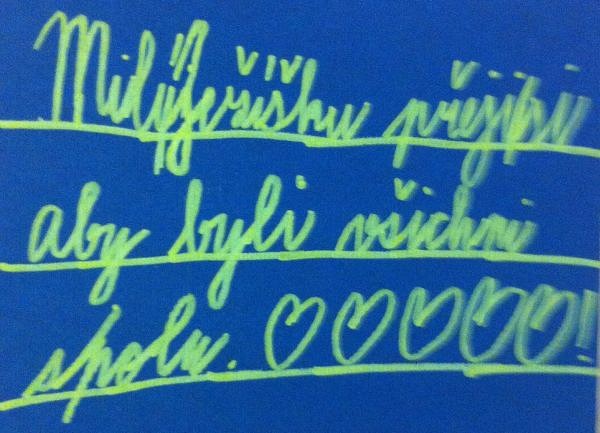 Milý Ježíšku přeji si
aby byli všichni
spolu. ♡♡♡♡♡!